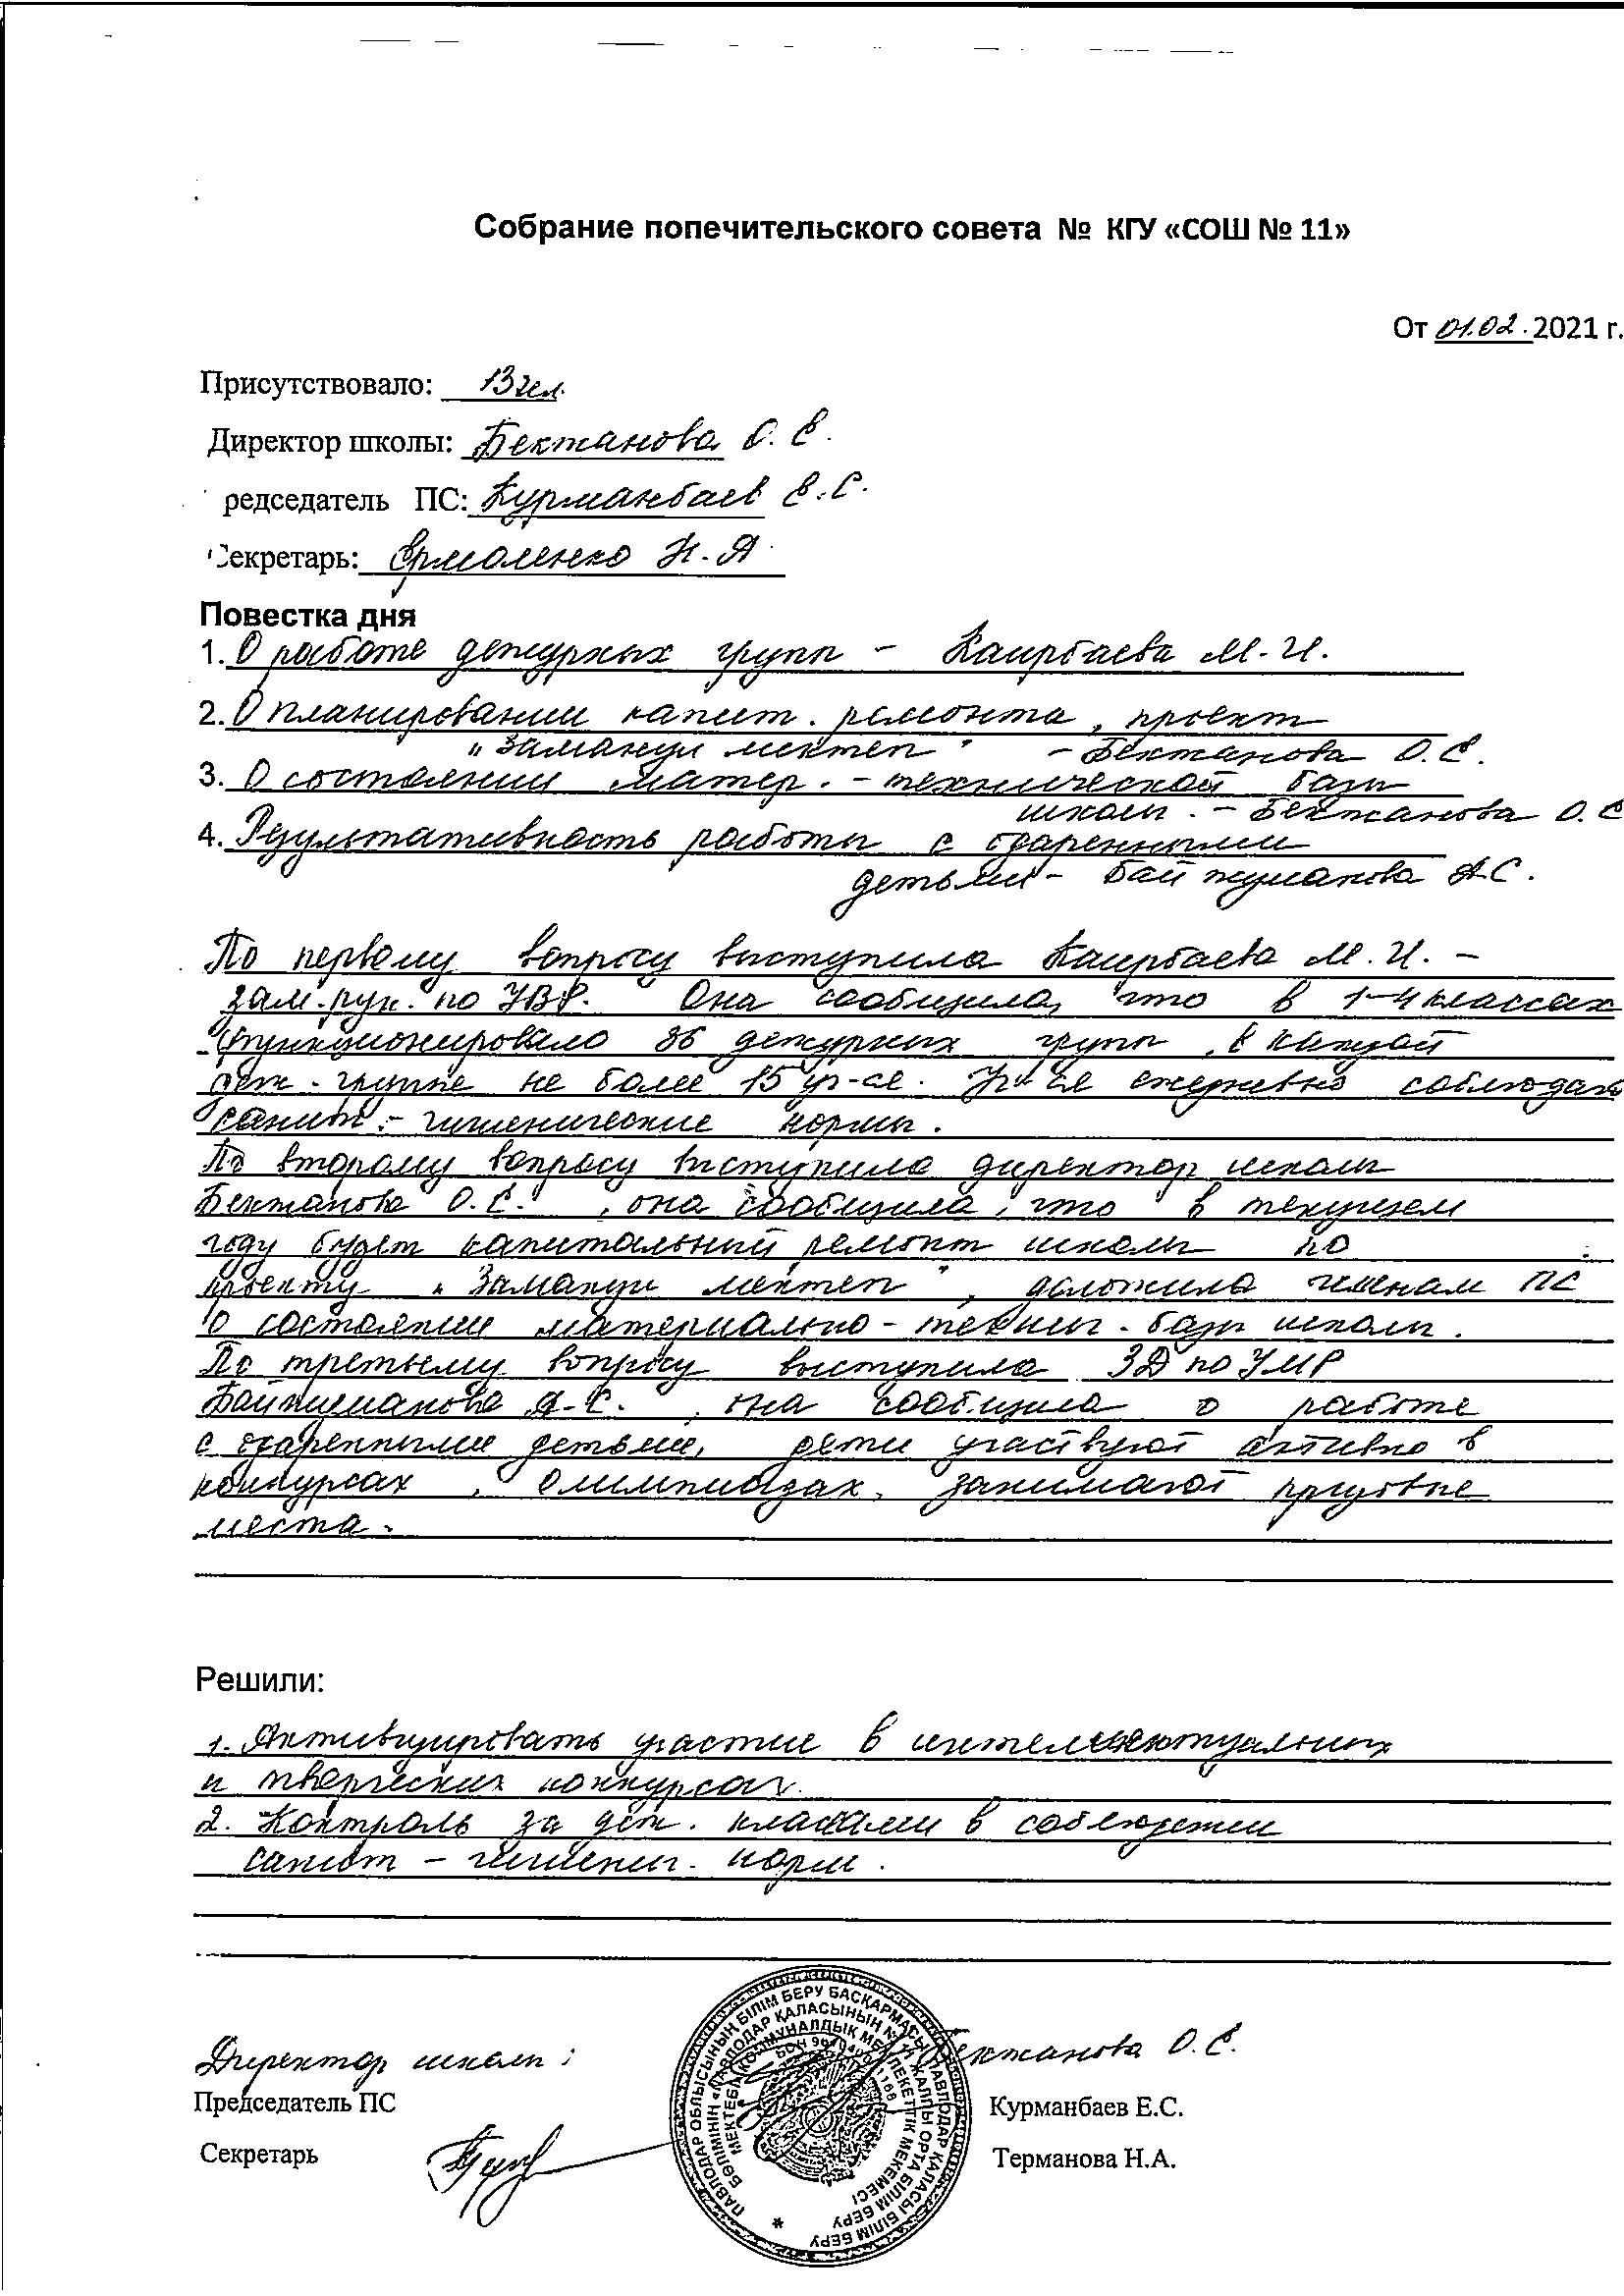 Собрание попечительского совета № КГУ «СОШ № 11»
От 01.02.2021 г.
Присутствовало: 13 чел.
Директор школы: Бектанова О. Е.
редседатель ПС: Курманбаев Е.С.
Секретарь: Ермоленко Н.Я
Повестка дня
1. О работе дежурных групп – Каирбаева М.И.
2. О планировании капит. ремонта, проект
"Заманауи мектеп" – Бектанова О.Е.
3. О состоянии матер. - технической базы
школы. – Бектанова О.Е
4. Результативность работы с одаренными
детьми – Байжуманова А.С.
По первому вопросу выступила Каирбаева М.И. –
зам.рук. по УВР. Она сообщила, что в 1-4 классах
функционировало 36 дежурных групп, в каждой
деж. группе не более 15 уч-ся. Уч-ся ежедневно соблюдают
санит.- гигиенические нормы.
По второму вопросу выступила директор школы
Бектанова О.Е., она сообщила, что в текущем
году будет капитальный ремонт школы по
проекту "Заманауи мектеп", доложила членам ПС
о состоянии материально - технич. базы школы.
По третьему вопросу выступила ЗД по УМР
Байжуманова А.С., она сообщила о работе
с одаренными детьми, дети участвуют активно в
конкурсах, олимпиадах, занимают призовые
места.
Решили:
1. Активизировать участие в интеллектуальных
и творческих конкурсах.
2. Контроль за деж. классами в соблюдении
санит – гигиенич. норм.
Директор школы: Бектанова О.Е.
Председатель ПС Курманбаев Е.С.
Секретарь Терманова Н.А.
ПАВЛОДАР ОБЛЫСЫНЫҢ БІЛІМ БЕРУ БАСҚАРМАСЫ ПАВЛОДАР ҚАЛАСЫ БІЛІМ БЕРУ
БӨЛІМІНІҢ «ПАВЛОДАР ҚАЛАСЫНЫҢ № 11 ЖАЛПЫ ОРТА БІЛІМ БЕРУ
МЕКТЕБІ» КОММУНАЛДЫҚ МЕМЛЕКЕТТІК МЕКЕМЕСІ